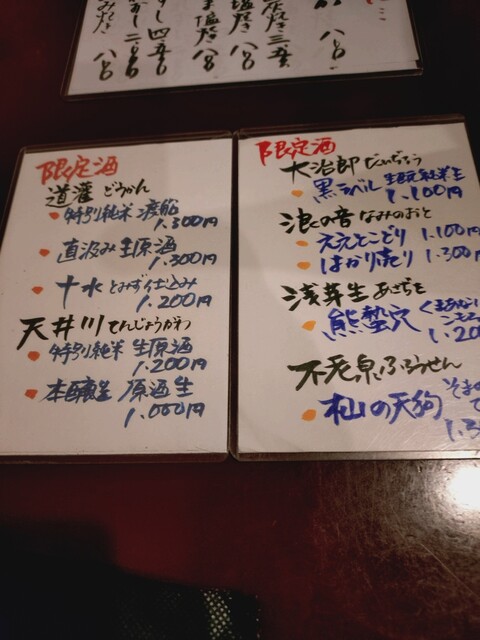 八〇
三五
塩焼き 八〇
塩焼き 八〇
四五〇
二〇〇
八〇
限定酒
道灌 どうかん
特別純米 渡船
1.300円
直汲み生原酒
1.300円
十水 とみず仕込み
1.200円
天井川 てんじょうがわ
特別純米 生原酒
1.200円
本醸生 原酒生
1.000円
限定酒
大治郎 だいぢろう
黒ラベル 生酛純米生
1.100円
浪の音 なみのおと
ええとこどり 1.100円
はかり売り 1.300円
浅茅生 あさぢを
熊蟄穴
1.20
不老泉 ふろうせん
杣の天狗
1.3